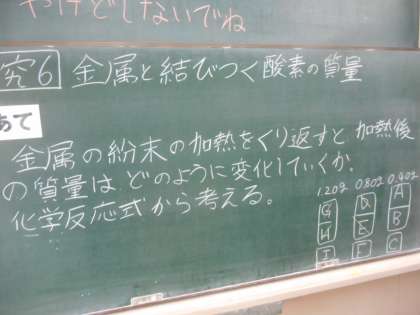 やけどしないでね
究6 金属と結びつく酸素の質量
あて
金属の粉末の加熱をくり返すと加熱後
の質量はどのように変化していくか。
化学反応式から考える。
1.20g 0.80g 0.40g
G D A
H E B
I F C